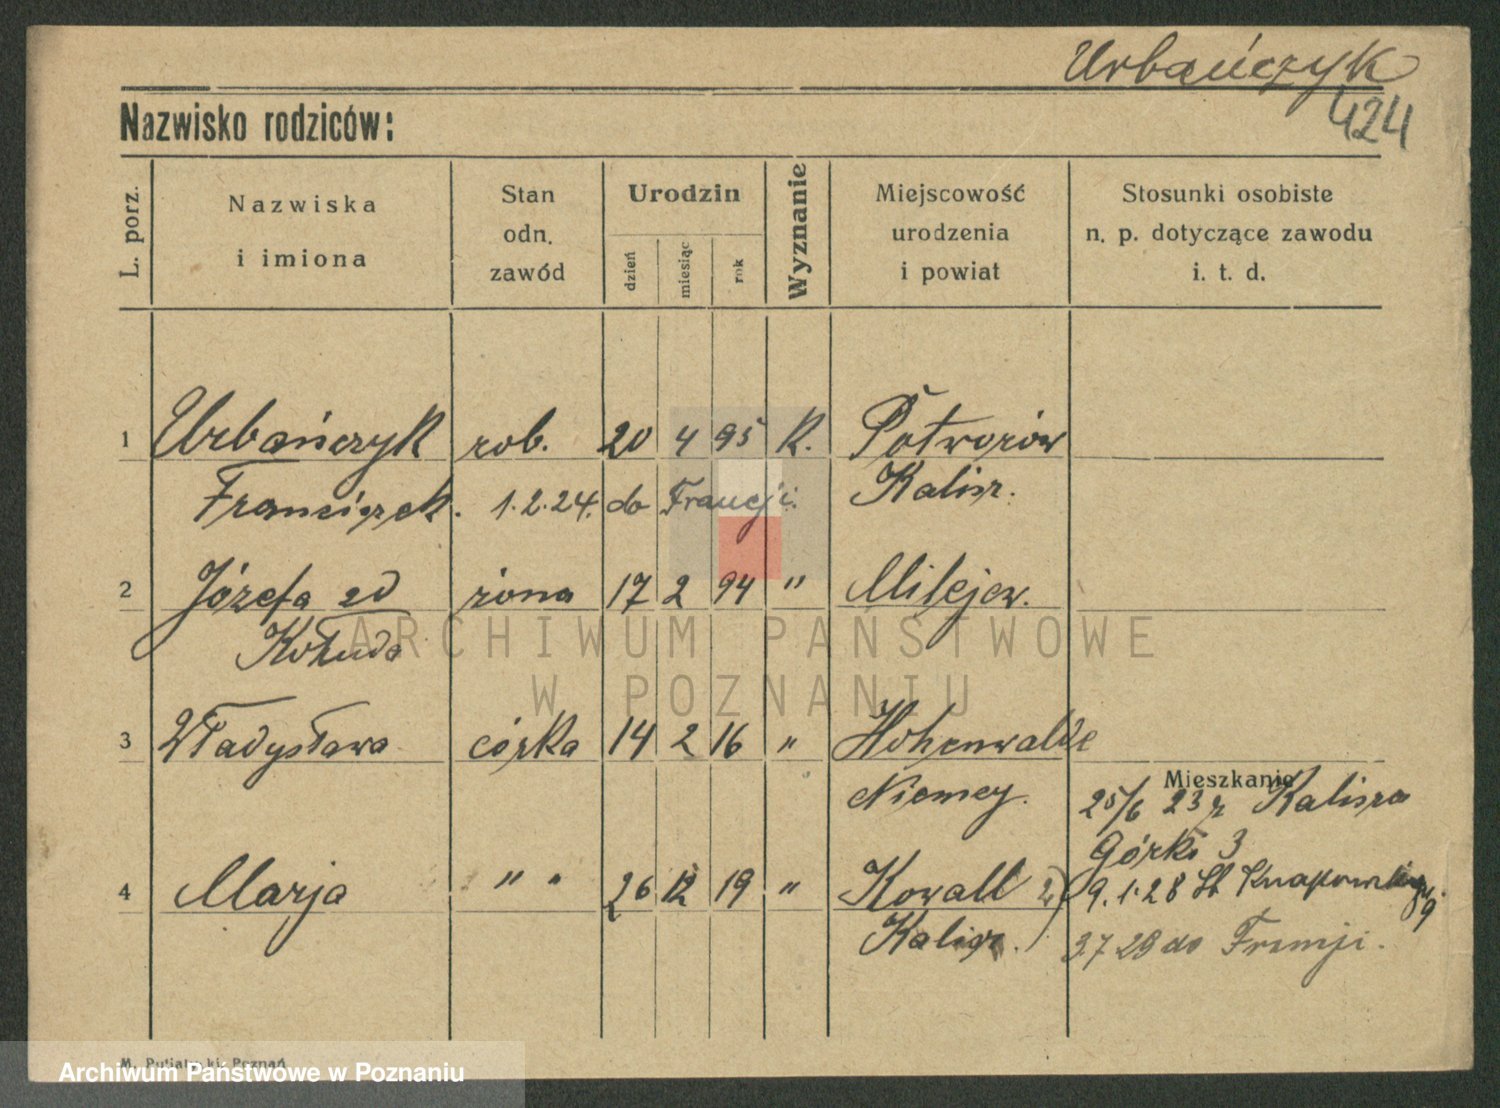 Urbańczyk
424
Nazwisko rodziców:
L. porz.
Nazwiska
i imiona
Stan
odn.
zawód
Urodzin
dzień
miesiąc
rok
Wyznanie
Miejscowość
urodzenia
i powiat
Stosunki osobiste
n. p. dotyczące zawodu
i. t. d.
1 Urbańczyk rob. 20 4 95 K. Potworów
Franciszek. 1.2.24. do Francji. Kalisz.
2 Józefa zd żona 17 2 94 " Milejew.
ARCHIWUM PAŃSTWOWE
W POZNANIU
3 Władysława córka 14 2 16 " Hohenwalde
Niemcy.
Mieszkanie
25/6 23 z Kalisza
Górki 3
4 Marja " " 26 12 19 " Kowall
9.1.28
Kalisz.
3 7 29 do Francji.
M. Putiatycki, Poznań
Archiwum Państwowe w Poznaniu